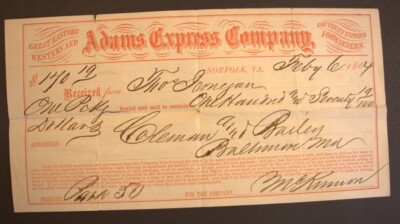 GREAT EASTERN
WESTERN AND
Adams Express Company,
SOUTHERN EXPRESS
FORWARDERS.
$170 19/100
NORFOLK, VA. Feby 6 1864
Received from Tho Jonegan
One Pkg sealed and said to contain One Hundred & Seventy 19/100
Dollars
ADDRESSED Coleman & Bailey
Baltimore Md
FOR THE COMPANY
McKinnon
Paid 50